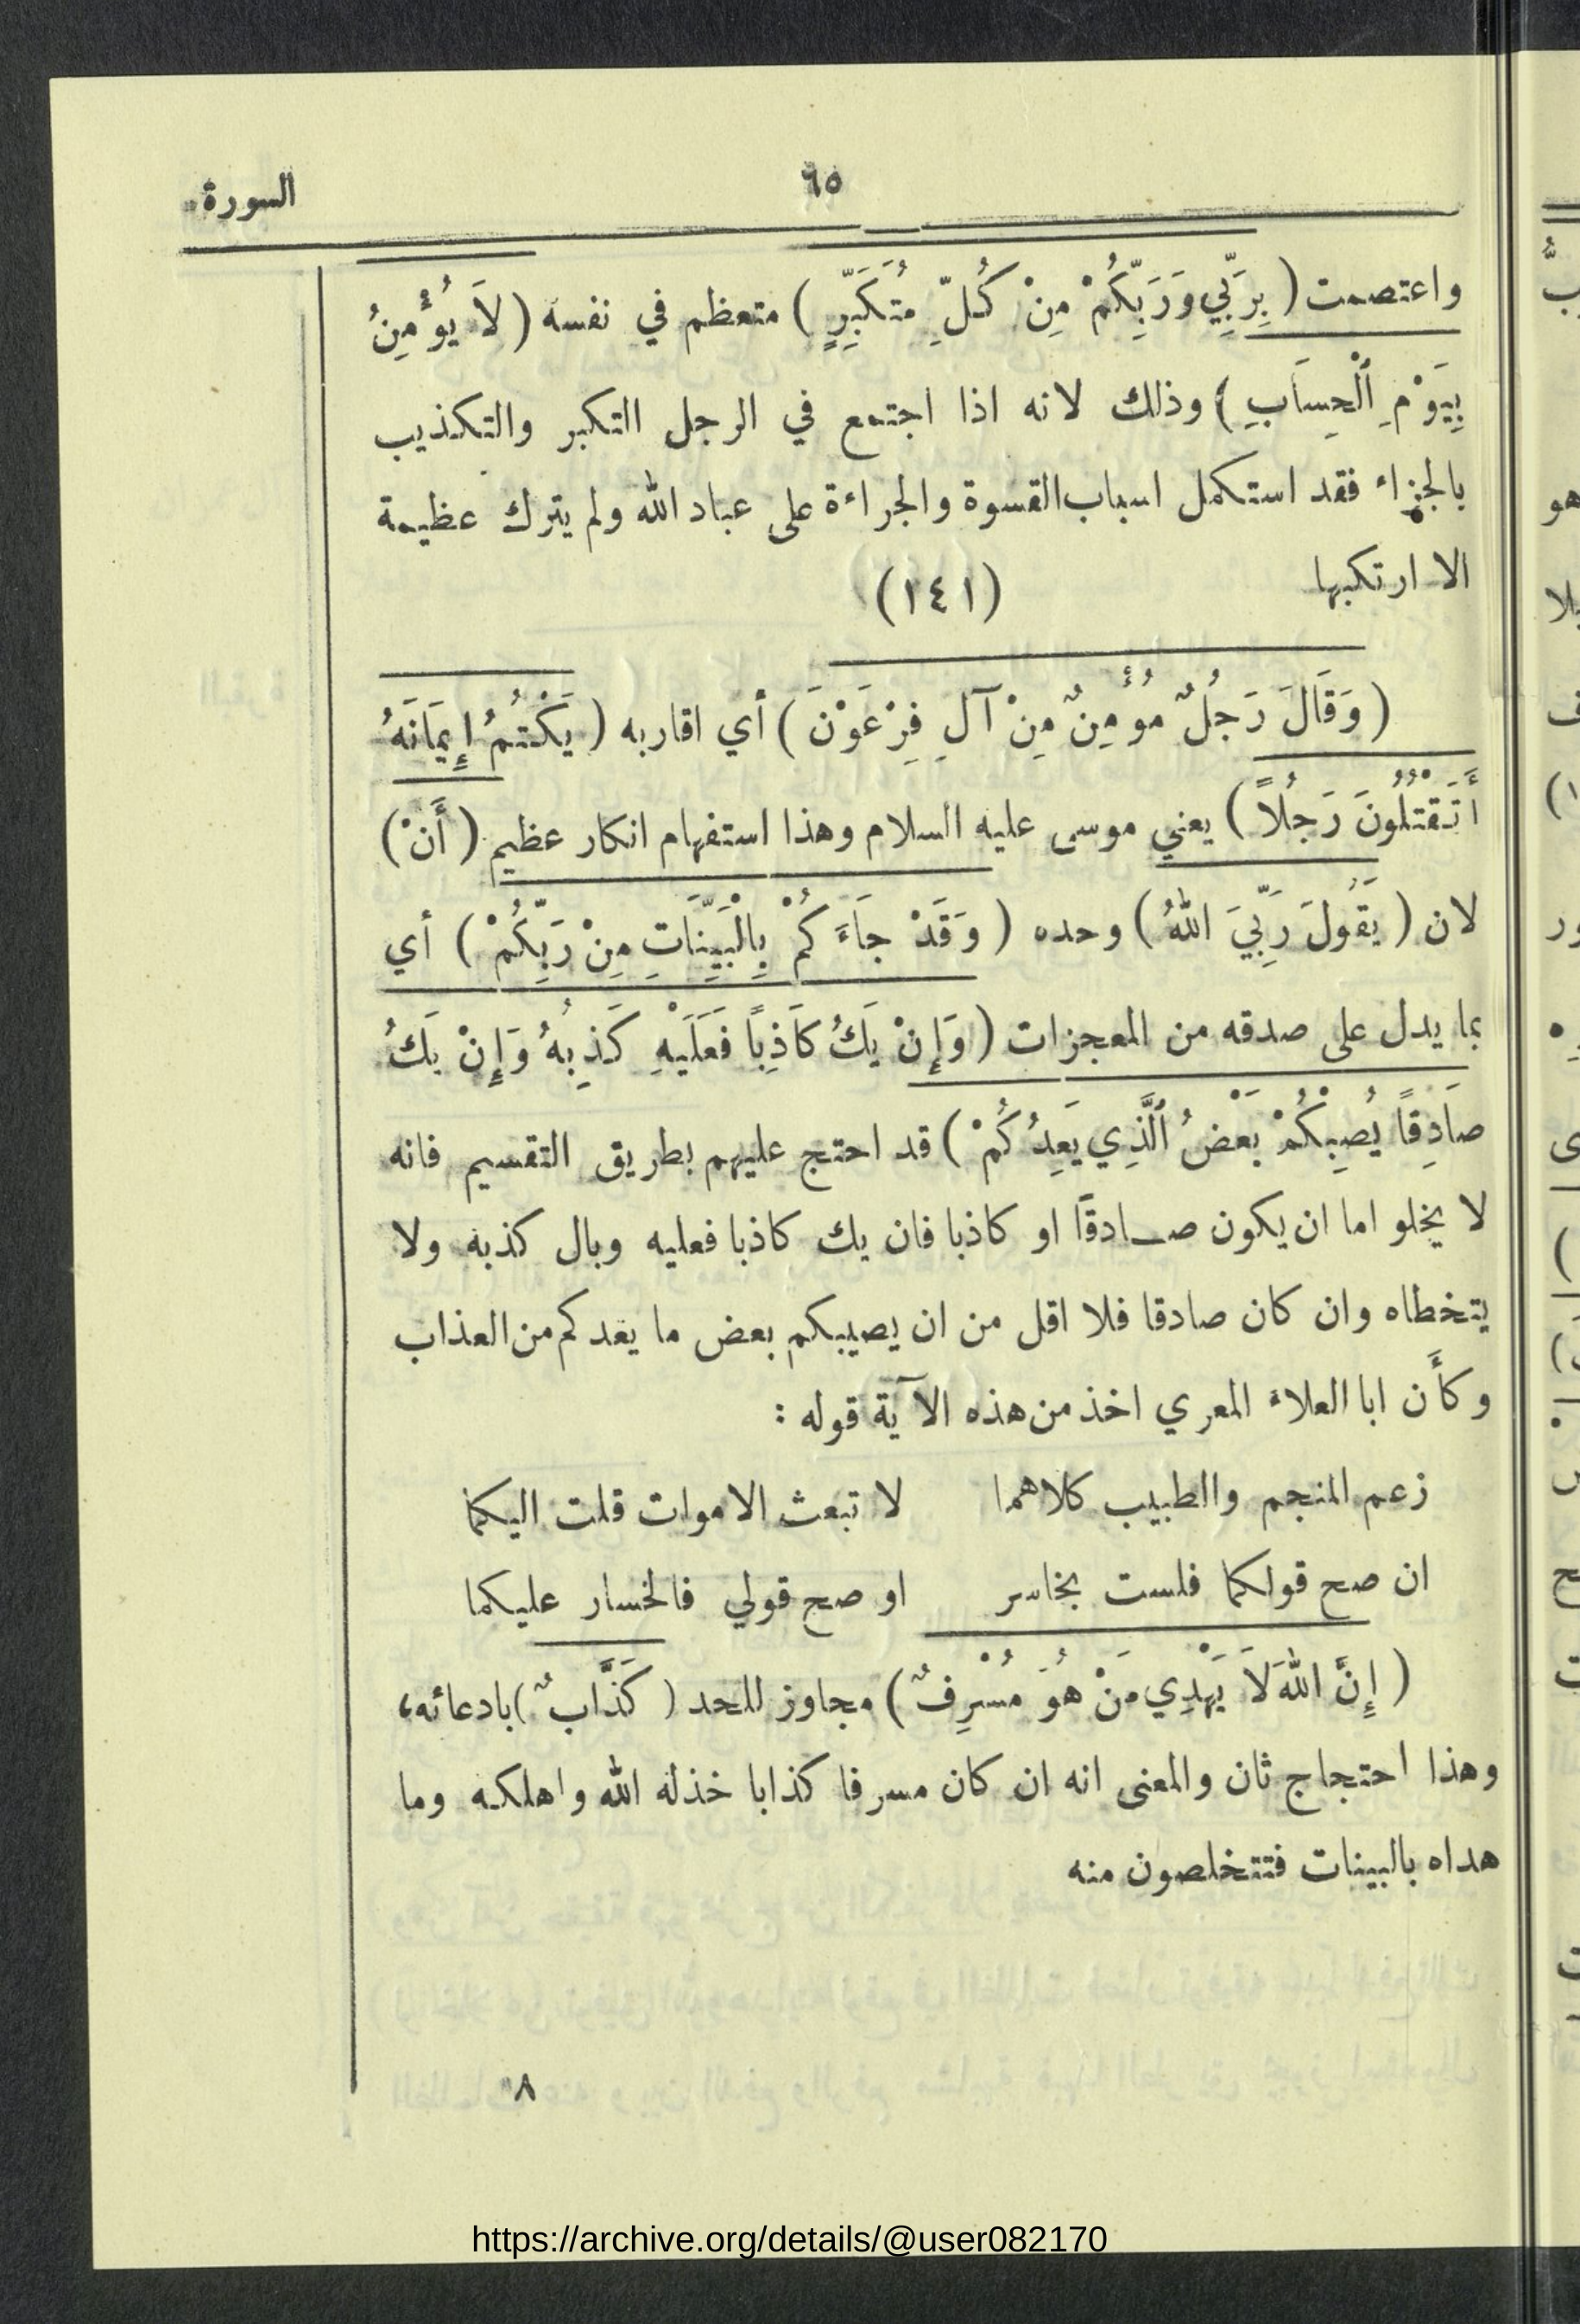 ٦٥
السورة
واعتصمت ( بِرَبِّي وَرَبِّكُمْ مِنْ كُلِّ مُتَكَبِّرٍ ) متعظم في نفسه ( لَا يُؤْمِنُ
بِيَوْمِ ٱلْحِسَابِ ) وذلك لانه اذا اجتمع في الرجل التكبر والتكذيب
بالجزاء فقد استكمل اسباب القسوة والجراءة على عباد الله ولم يترك عظيمة
الا ارتكبها
(١٤١)
( وَقَالَ رَجُلٌ مُؤْمِنٌ مِنْ آلِ فِرْعَوْنَ ) أي اقاربه ( يَكْتُمُ إِيمَانَهُ
أَتَقْتُلُونَ رَجُلاً ) يعني موسى عليه السلام وهذا استفهام انكار عظيم ( أَنْ )
لان ( يَقُولَ رَبِّيَ اللهُ ) وحده ( وَقَدْ جَاءَكُمْ بِالْبَيِّنَاتِ مِنْ رَبِّكُمْ ) أي
بما يدل على صدقه من المعجزات ( وَإِنْ يَكُ كَاذِبًا فَعَلَيْهِ كَذِبُهُ وَإِنْ يَكُ
صَادِقًا يُصِبْكُمْ بَعْضُ ٱلَّذِي يَعِدُكُمْ ) قد احتج عليهم بطريق التقسيم فانه
لا يخلو اما ان يكون صـادقًا او كاذبا فان يك كاذبا فعليه وبال كذبه ولا
يتخطاه وان كان صادقا فلا اقل من ان يصيبكم بعض ما يعدكم من العذاب
وكأَن ابا العلاء المعري اخذ من هذه الآية قوله :
زعم المنجم والطبيب كلاهما لا تبعث الاموات قلت اليكما
ان صح قولكما فلست بخاسر او صح قولي فالخسار عليكما
( إِنَّ اللهَ لَا يَهْدِي مَنْ هُوَ مُسْرِفٌ ) مجاوز للحد ( كَذَّابٌ ) بادعائه،
وهذا احتجاج ثان والمعنى انه ان كان مسرفا كذابا خذله الله واهلكه وما
هداه بالبينات فتتخلصون منه
٨
https://archive.org/details/@user082170